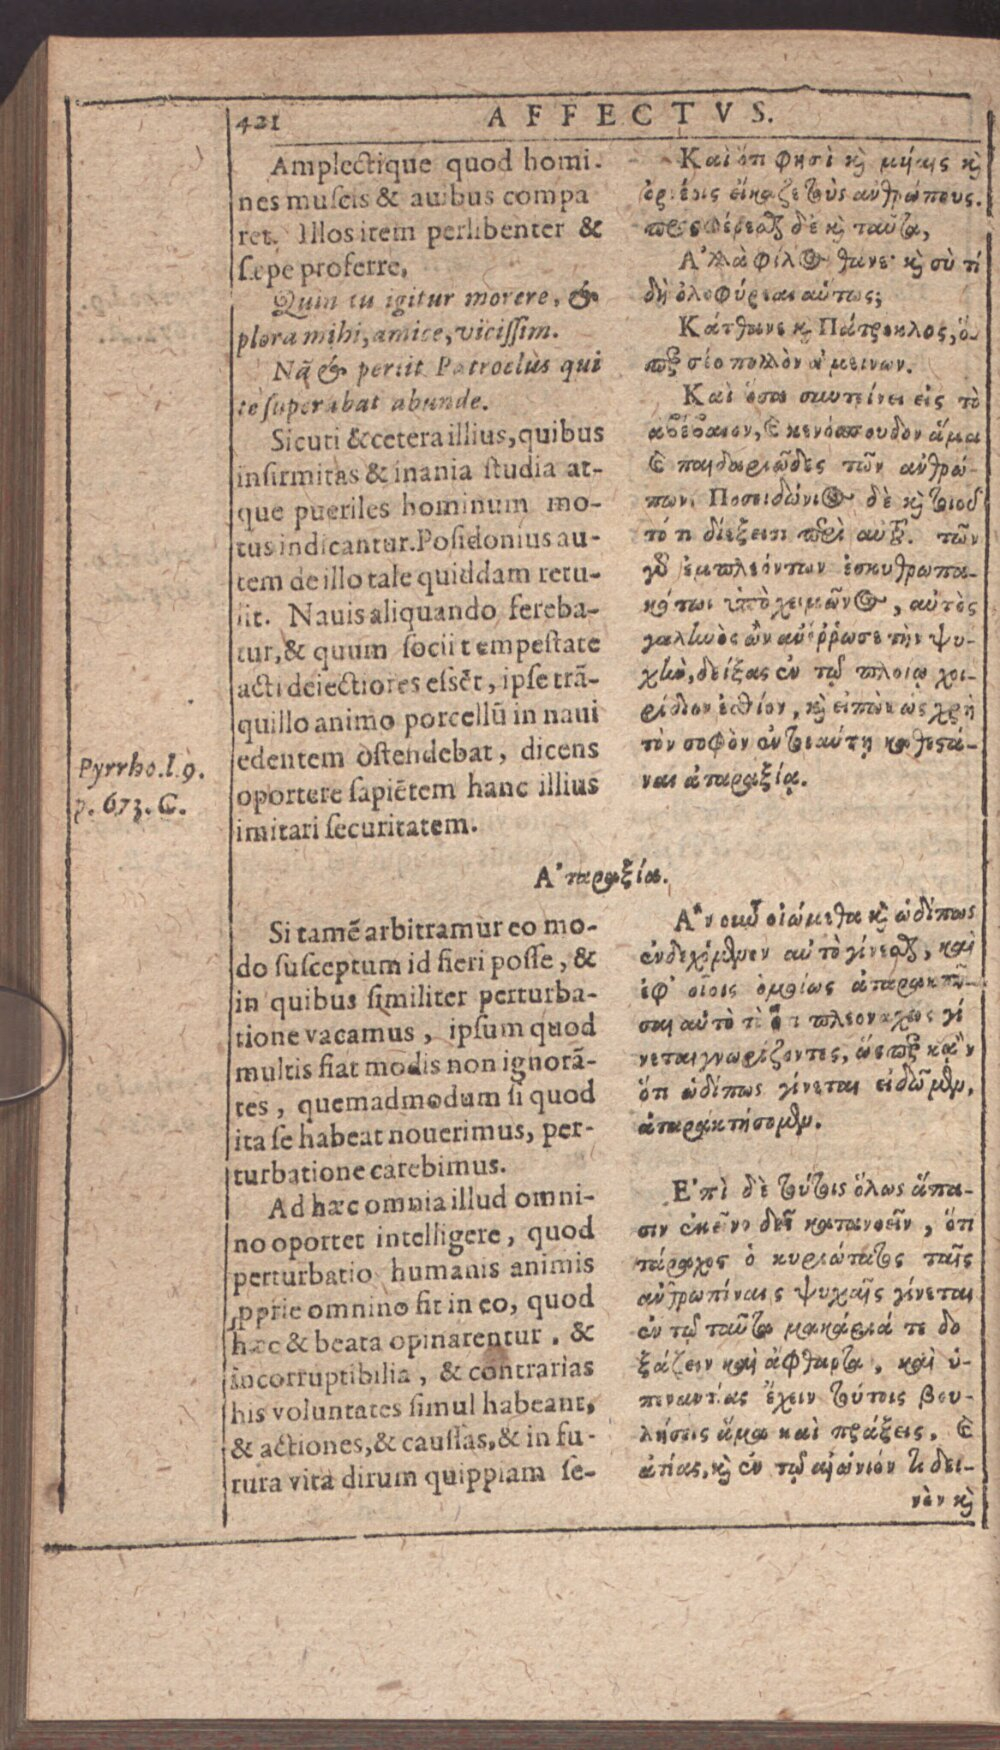 421
AFFECTVS.
Amplectique quod homi-
nes muscis & auibus compa
ret. Illos item perlibenter &
sæpe proferre,
Quin tu igitur morere, &
plora mihi, amice, vicissim.
Nã & periit Patroclùs qui
te superabat abunde.
Sicuti & cetera illius, quibus
infirmitas & inania studia at-
que pueriles hominum mo-
tus indicantur. Posidonius au-
tem de illo tale quiddam retu-
lit. Nauis aliquando fereba-
tur, & quum socii tempestate
acti deiectiores essẽt, ipse trã-
quillo animo porcellũ in naui
edentem ostendebat, dicens
oportere sapiẽtem hanc illius
imitari securitatem.
Pyrrho. l. 9.
p. 673. C.
Καὶ ὅτι φησὶ καὶ μύαις καὶ
ὀρνέοις εἴκαζε τοὺς ἀνθρώπους.
προσφέρεσθαι δὲ καὶ ταῦτα,
Α᾿λλὰ φίλος θάνε καὶ σὺ τί
δὴ ὀλοφύρεαι αὕτως;
Κάτθανε καὶ Πάτροκλος, ὅ-
περ σέο πολλὸν ἀμείνων.
Καὶ ὅσα συντείνει εἰς τὸ
ἀβέβαιον, & κενόσπουδον ἅμα
& παιδαριῶδες τῶν ἀνθρώ-
πων. Ποσειδώνιος δὲ καὶ τοιοῦ
τό τι διέξεισι περὶ αὐτοῦ. τῶν
γὸ ἐμπλεόντων ἐσκυθρωπα-
κότων ὑπὸ χειμῶνος, αὐτὸς
γαληνὸς ὢν ἀνέῤῥωσε τὴν ψυ-
χὴν, δείξας ἐν τῷ πλοίῳ χοι-
ρίδιον ἐσθίον, καὶ εἰπὼν ὡς χρὴ
τὸν σοφὸν ἐν τοιαύτῃ καθεστά-
ναι ἀταραξίᾳ.
Α᾿ταραξία.
Si tamẽ arbitramur eo mo-
do susceptum id fieri posse, &
in quibus similiter perturba-
tione vacamus, ipsum quod
multis fiat modis non ignorã-
tes, quemadmodum si quod
ita se habeat nouerimus, per-
turbatione carebimus.
Ad hæc omnia illud omni-
no oportet intelligere, quod
perturbatio humanis animis
pprie omnino fit in eo, quod
hæc & beata opinarentur, &
incorruptibilia, & contrarias
his voluntates simul habeant,
& actiones, & caussas, & in fu-
tura vita dirum quippiam se-
Α῎ν οὖν οἰώμεθα καὶ ὡδίπως
ἐνδεχόμενον αὐτὸ γίνεσθαι, καὶ
ἐφ᾿ οἵοις ὁμοίως ἀταρακτῆ-
σαι αὐτὸ τὸ ὅτι πλεοναχῶς γί
νεται γνωρίζοντες, ὥσπερ κἂν
ὅτι ὡδίπως γίνεται εἰδῶμεν,
ἀταρακτήσομεν.
Ε᾿πὶ δὲ τούτοις ὅλως ἅπα-
σιν ἐκεῖνο δεῖ κατανοεῖν, ὅτι
τάραχος ὁ κυριώτατος ταῖς
ἀνθρωπίναις ψυχαῖς γίνεται
ἐν τῷ ταῦτα μακάριά τε δο
ξάζειν καὶ ἄφθαρτα, καὶ ὑ-
πεναντίας ἔχειν τούτοις βου-
λήσεις ἅμα καὶ πράξεις, &
αἰτίας, καὶ ἐν τῷ αἰώνιόν τι δει-
νὸν καὶ